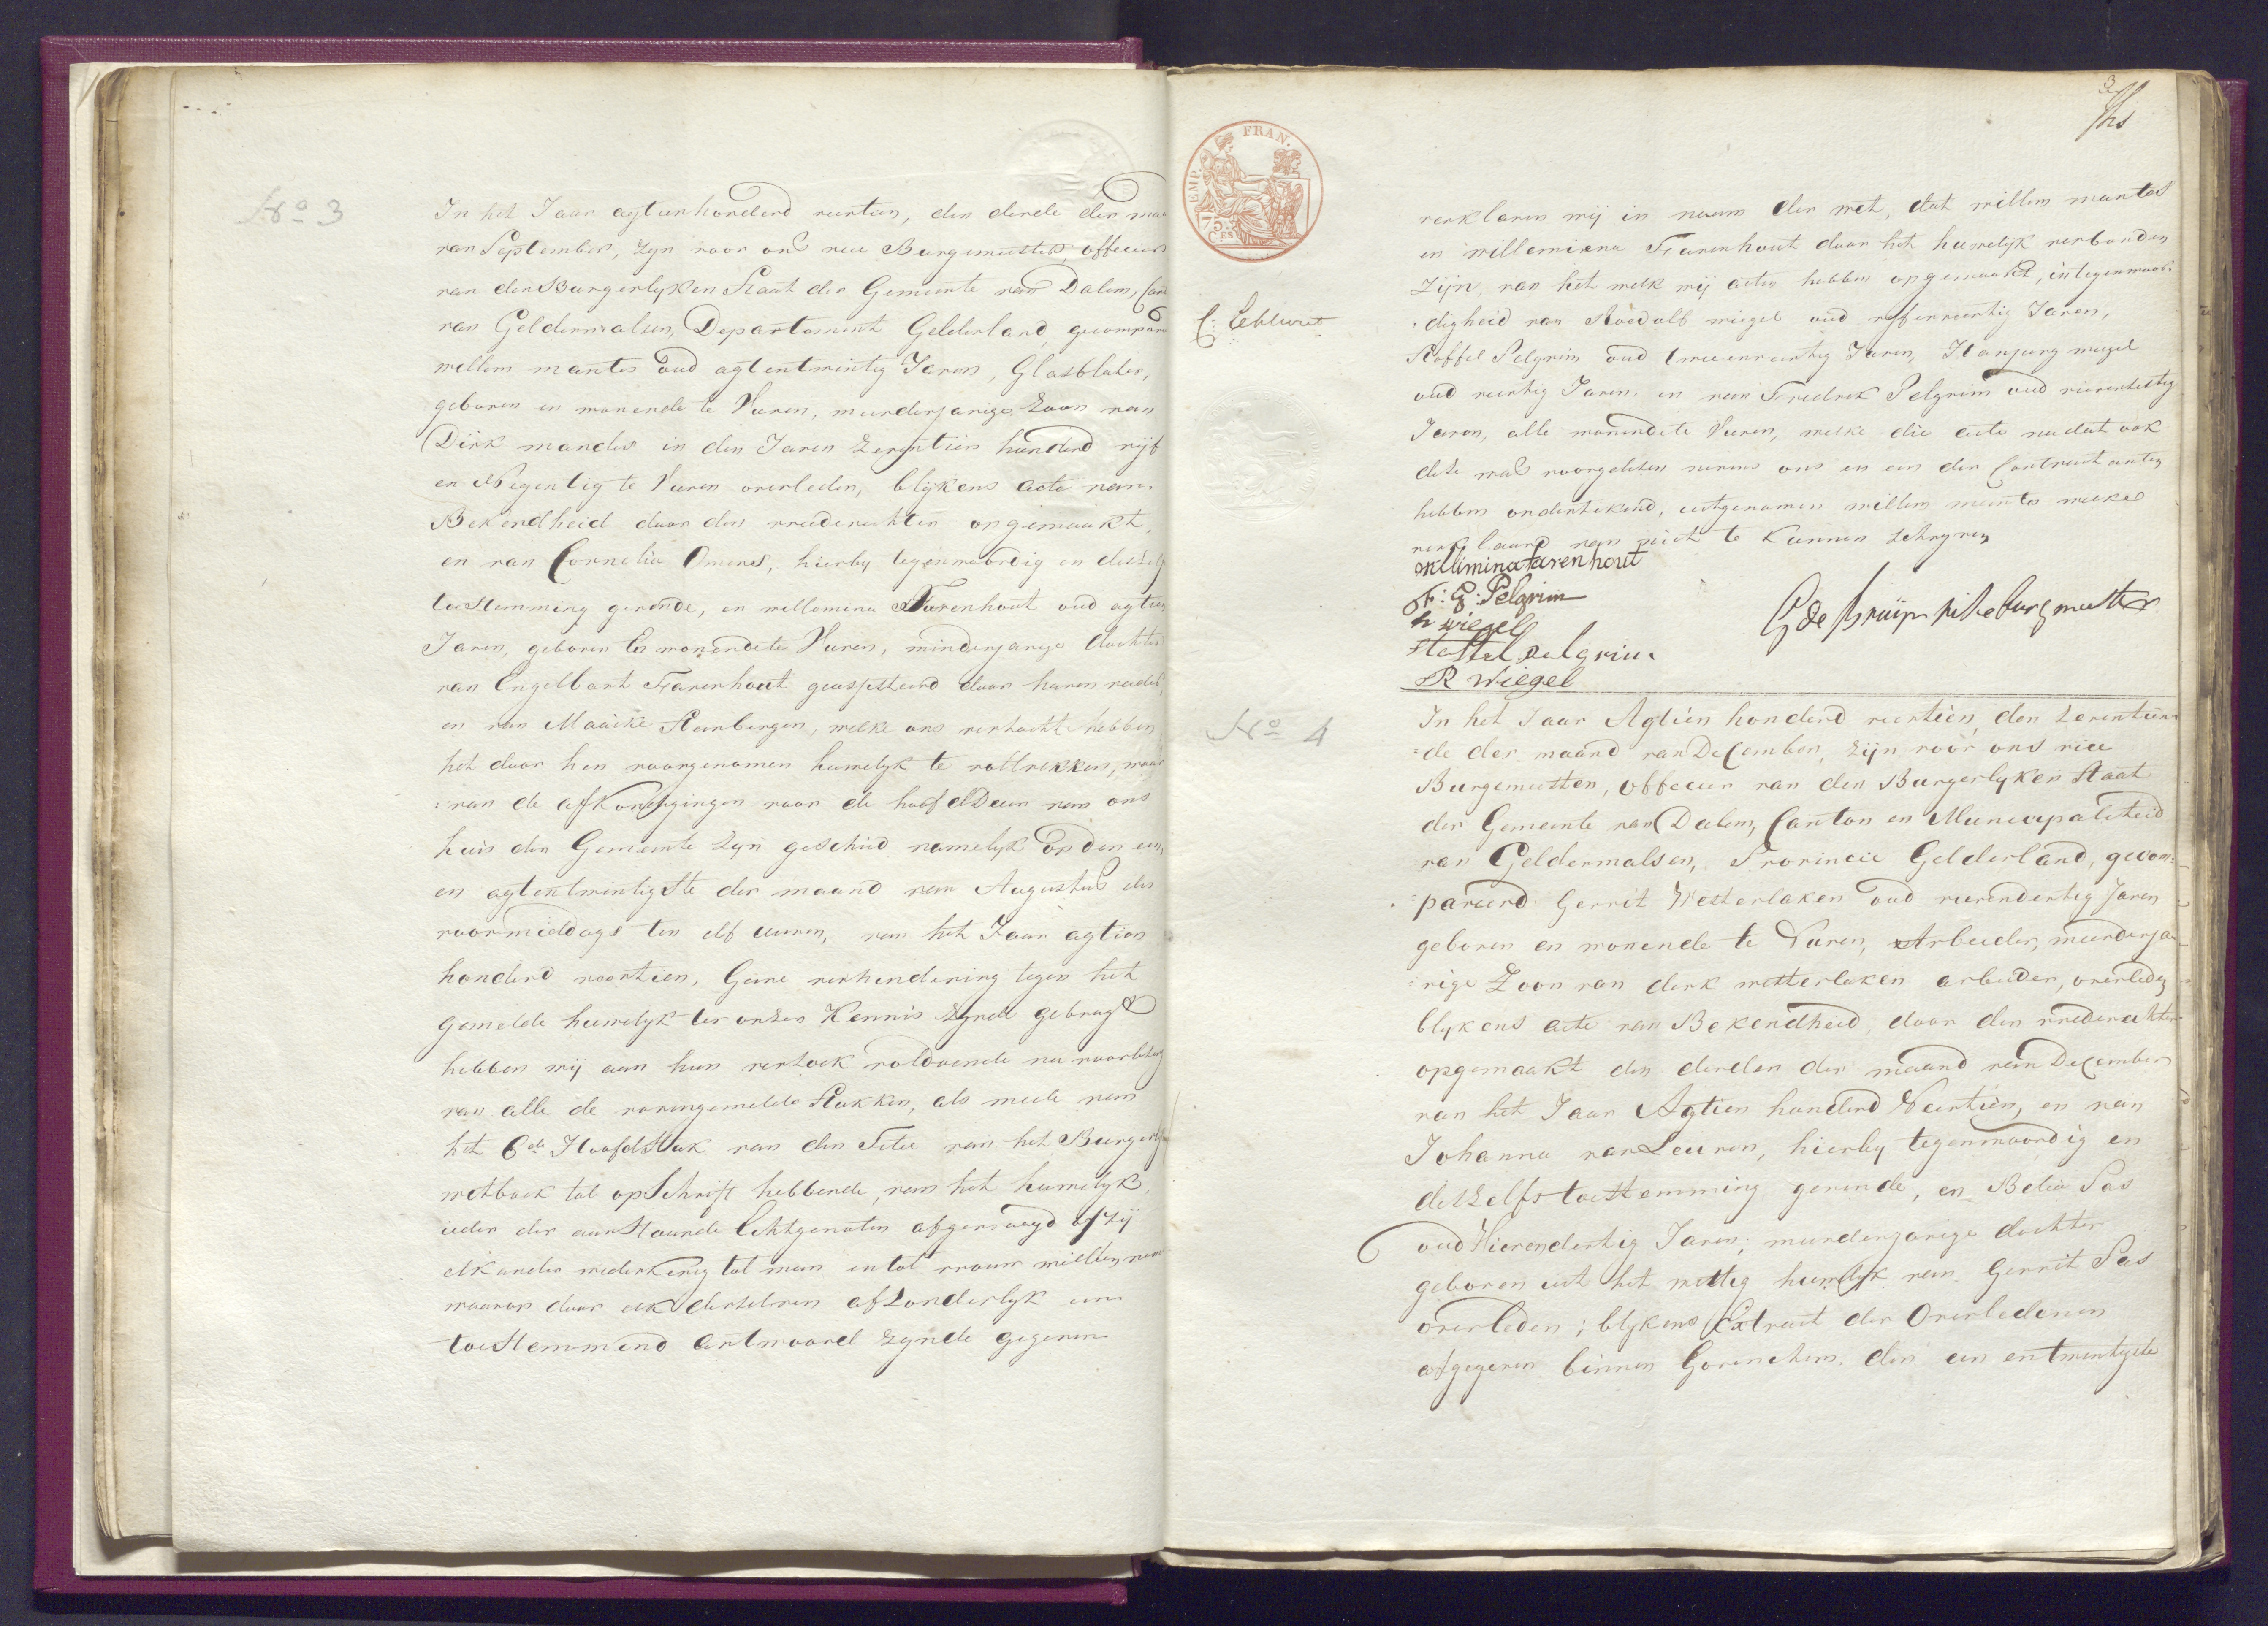 No 3
In het Jaar agtienhonderd veertien, den derde der maa
van September, zyn voor ons vice Burgemeester, officier
van den Burgerlyken Staat der Gemeente van Dalem, Cant
van Geldermalsen, Departement Gelderland, gecompar
willem mantes oud agtentwintig Jaren, Glasblaser,
geboren en wonende te Vuren, meerderjarige Zoon van
Dirk mandes in den Jaren zeventien hunderd vyf
en Negentig te Vuren overleden, blykens acte van
Bekendheid door den vrederechter opgemaakt,
en van Cornelia Omens, hierby tegenwoordig en deszelfs
toestemming gevende, en willemina Farenhout oud agtien
Jaren, geboren En wonende te Vuren, minderjarige dochter
van Engelbart Farenhout geassisteerd door haren vader,
en van Maaike Steenbergen, welke ons verzocht hebben
het door hen voorgenomen huwelyk te voltrekken, waar
van de afkondigingen voor de hoofd Deur van ons
huis der Gemeente zyn geschied namelyk op den een
en agtentwintigste der maand van Augustus des
voormiddags ten elf uuren, van het Jaar agtien
honderd veertien, Geene verhindering tegen het
gemelde huwelyk ter onzer Kennis zynde gebragt
hebben wy aan hun verzoek voldoende na voorlezing
van alle de vorengemelde stukken, als mede van
het 6de Hoofdstuk van den Titel van het Burgerlyk
wetboek tot opschrift hebbende, van het huwelyk,
ieder der aanstaande Echtgenoten afgevraagd of zy
elkander wederkerig tot man en tot vrouw willen nemen
waarop door elk derzelven afzonderlyk een
toestemmend antwoord zynde gegeven
EMP. FRAN.
75 Ces
3
verklaren wij in naam der wet, dat willem mantes
en willemina Farenhout door het huwelyk verbonden
zijn, van het welk wij acten hebben opgemaakt, in tegenwoor-
digheid van Roedolf wiegel oud vyfenveertig Jaren,
Stoffel Pelgrim oud tweeenveertig Jaren, Hanjurg wiegel
oud veertig Jaren, en van Fredrik Pelgrim oud vierendertig
Jaren, alle wonende te Vuren, welke die acte nadat ook
deze was voorgelezen nevens ons en een der Contractanten
hebben ondertekend, uitgenomen willem mantes welke
verklaard van niet te kunnen schryven
willimina farenhout
F: G: Pelgrim
h wiegel
Stoffel Pelgrim
R Wiegel
G de bruijn vice burgmeester
No 4
In het Jaar Agtien honderd veertien, den zeventien
=de der maand van December, zijn voor ons vice
Burgemeester, officier van den Burgerlyken Staat
der Gemeente van Dalem, Canton en Municipaliteid
van Geldermalsen, Provincie Gelderland, gecom=
=pareerd Gerrit Westerlaken oud vierendertig Jaren
geboren en wonende te Vuren, Arbeider, meerderja
=rige Zoon van derk westerlaken arbeider, overleden
blykens acte van Bekendheid, door den vrederechter
opgemaakt den derden der maand van December
van het Jaar Agtien honderd Veertien, en van
Johanna van Leuven, hierby tegenwoordig en
deszelfs toestemming gevende, en Belia Sas
oud Vierendertig Jaren, meerderjarige dochter
geboren uit het wettig huwelyk van Gerrit Sas
overleden; blykens Extract der Overledenen
afgegeven binnen Gorinchem, den een entwintigste